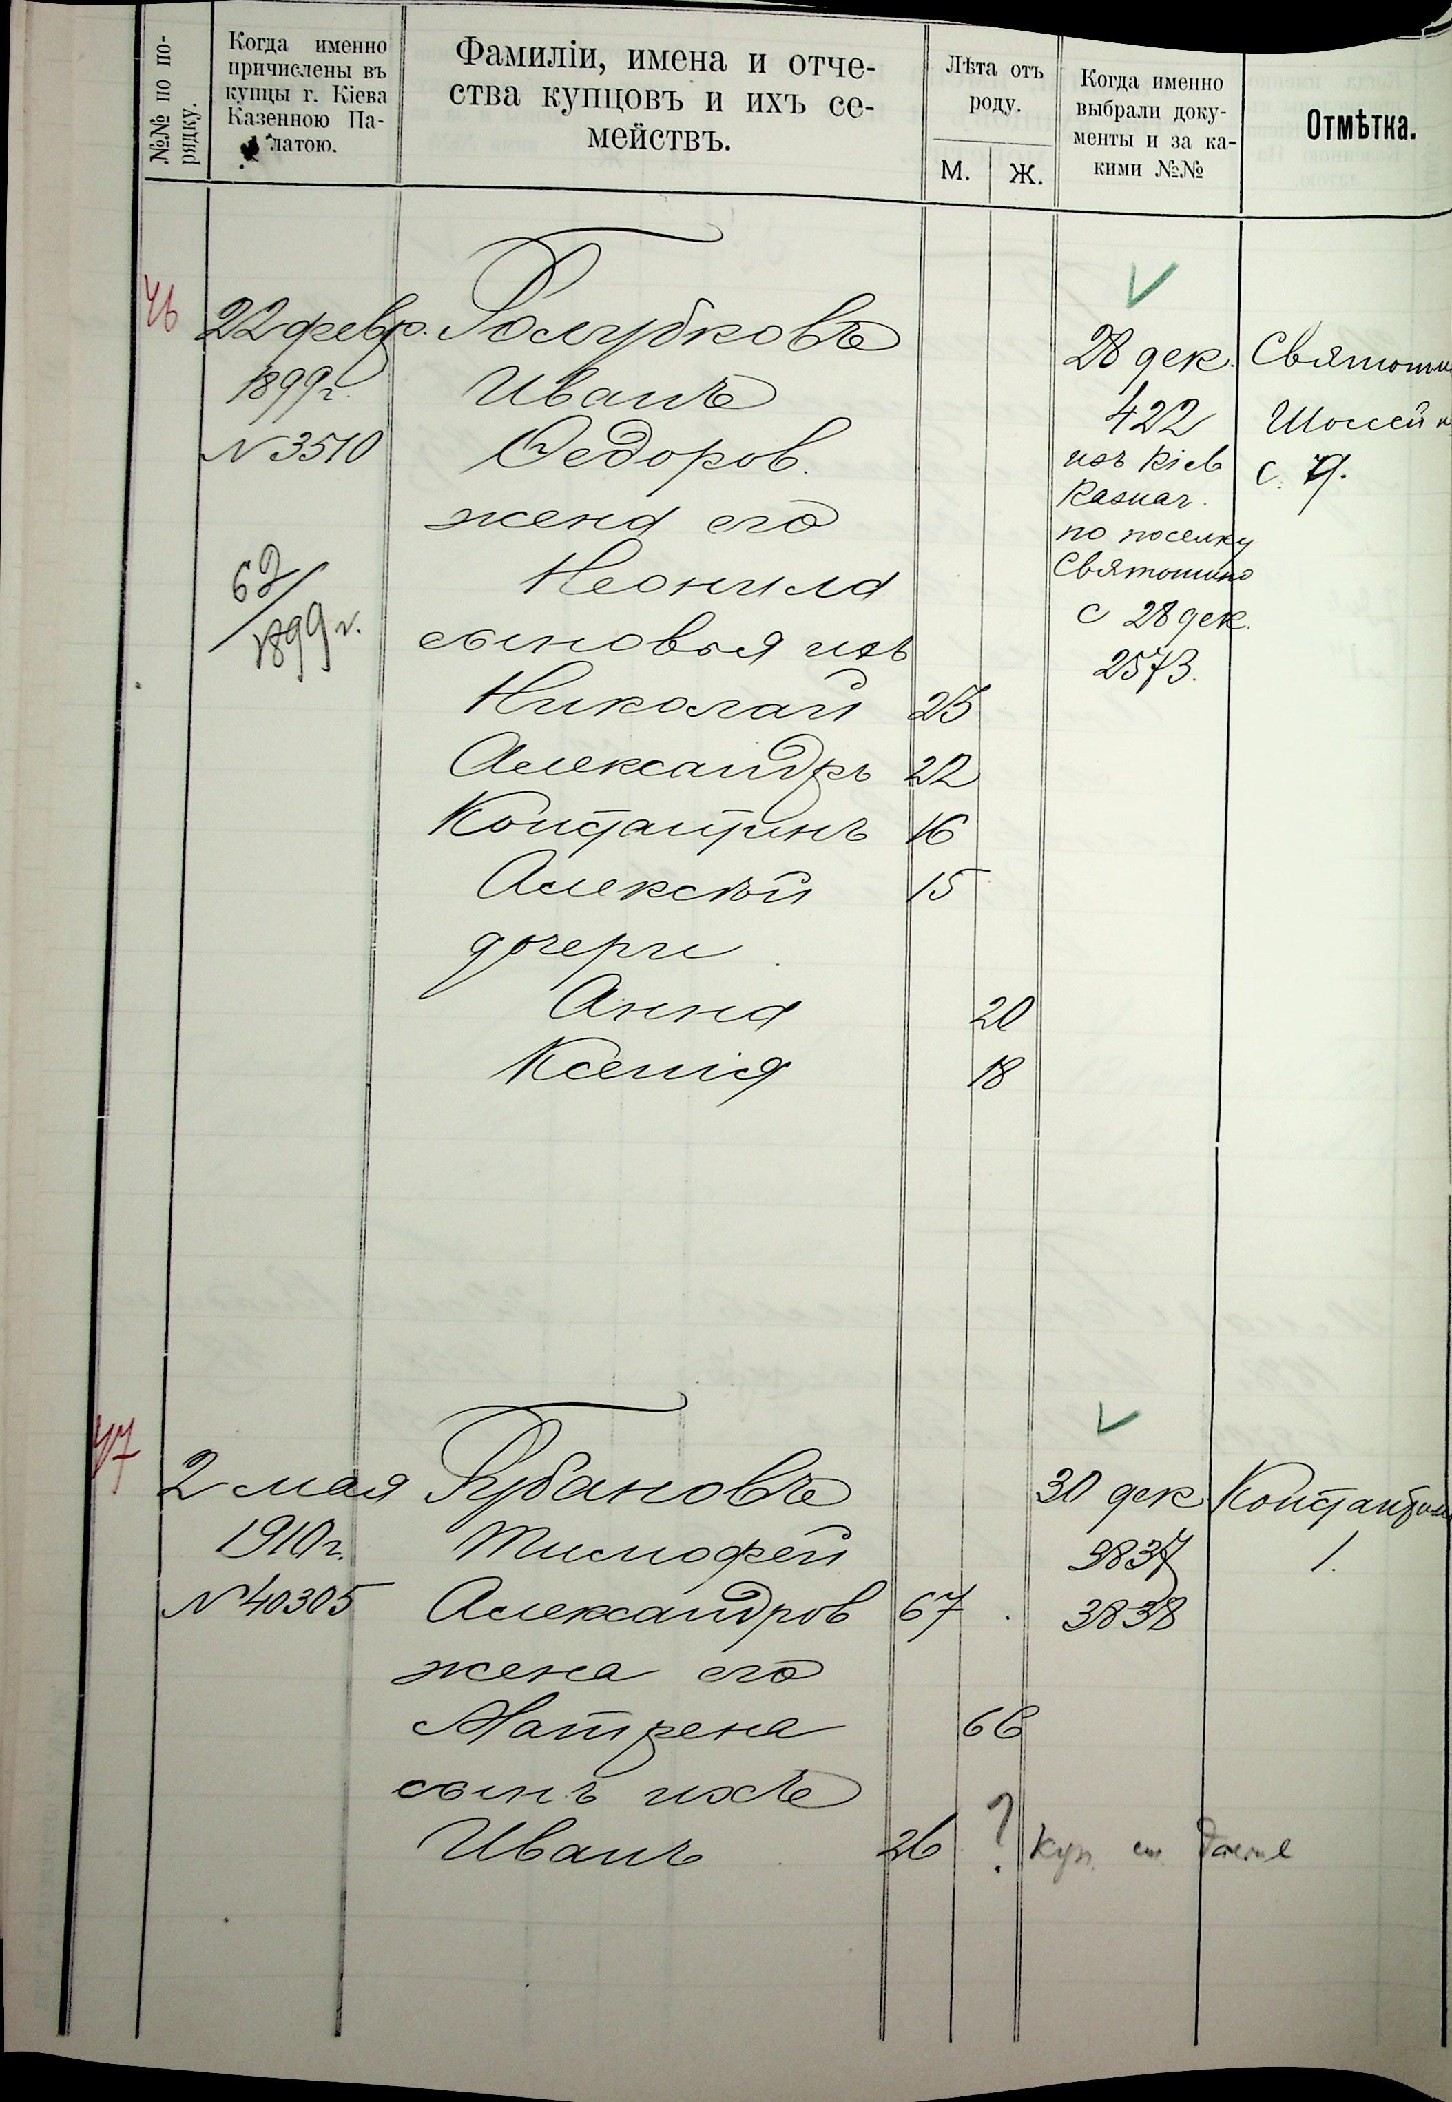 №№ по по-
рядку.
Когда именно
причислены въ
купцы г. Кіева
Казенною Па-
латою.
Фамиліи, имена и отче-
ства купцовъ и ихъ се-
мействъ.
Лѣта отъ
роду.
М.
Ж.
Когда именно
выбрали доку-
менты и за ка-
кими №№
Отмѣтка.
46
22 февр.
1899 г.
N 3510
62/1899 г.
Голубковъ
Иванъ
Ѳедоров.
жена его
Неонила
сыновья ихъ
Николай 25
Александръ 22
Константинъ 16
Алексѣй 15
дочери
Анна 20
Ксенія 18
28 дек.
422
изъ Кіев
Казнач.
по поселку
Святошино
с 28 дек.
2573.
Святоши
Шоссейн
с. 7.
47
2 мая
1910 г.
N 40305
Губановъ
Тимофей
Александров 67
жена его
Матрена 66
сынъ ихъ
Иванъ 26 ?
30 дек
3837
3838
Куп.
Констант
1.